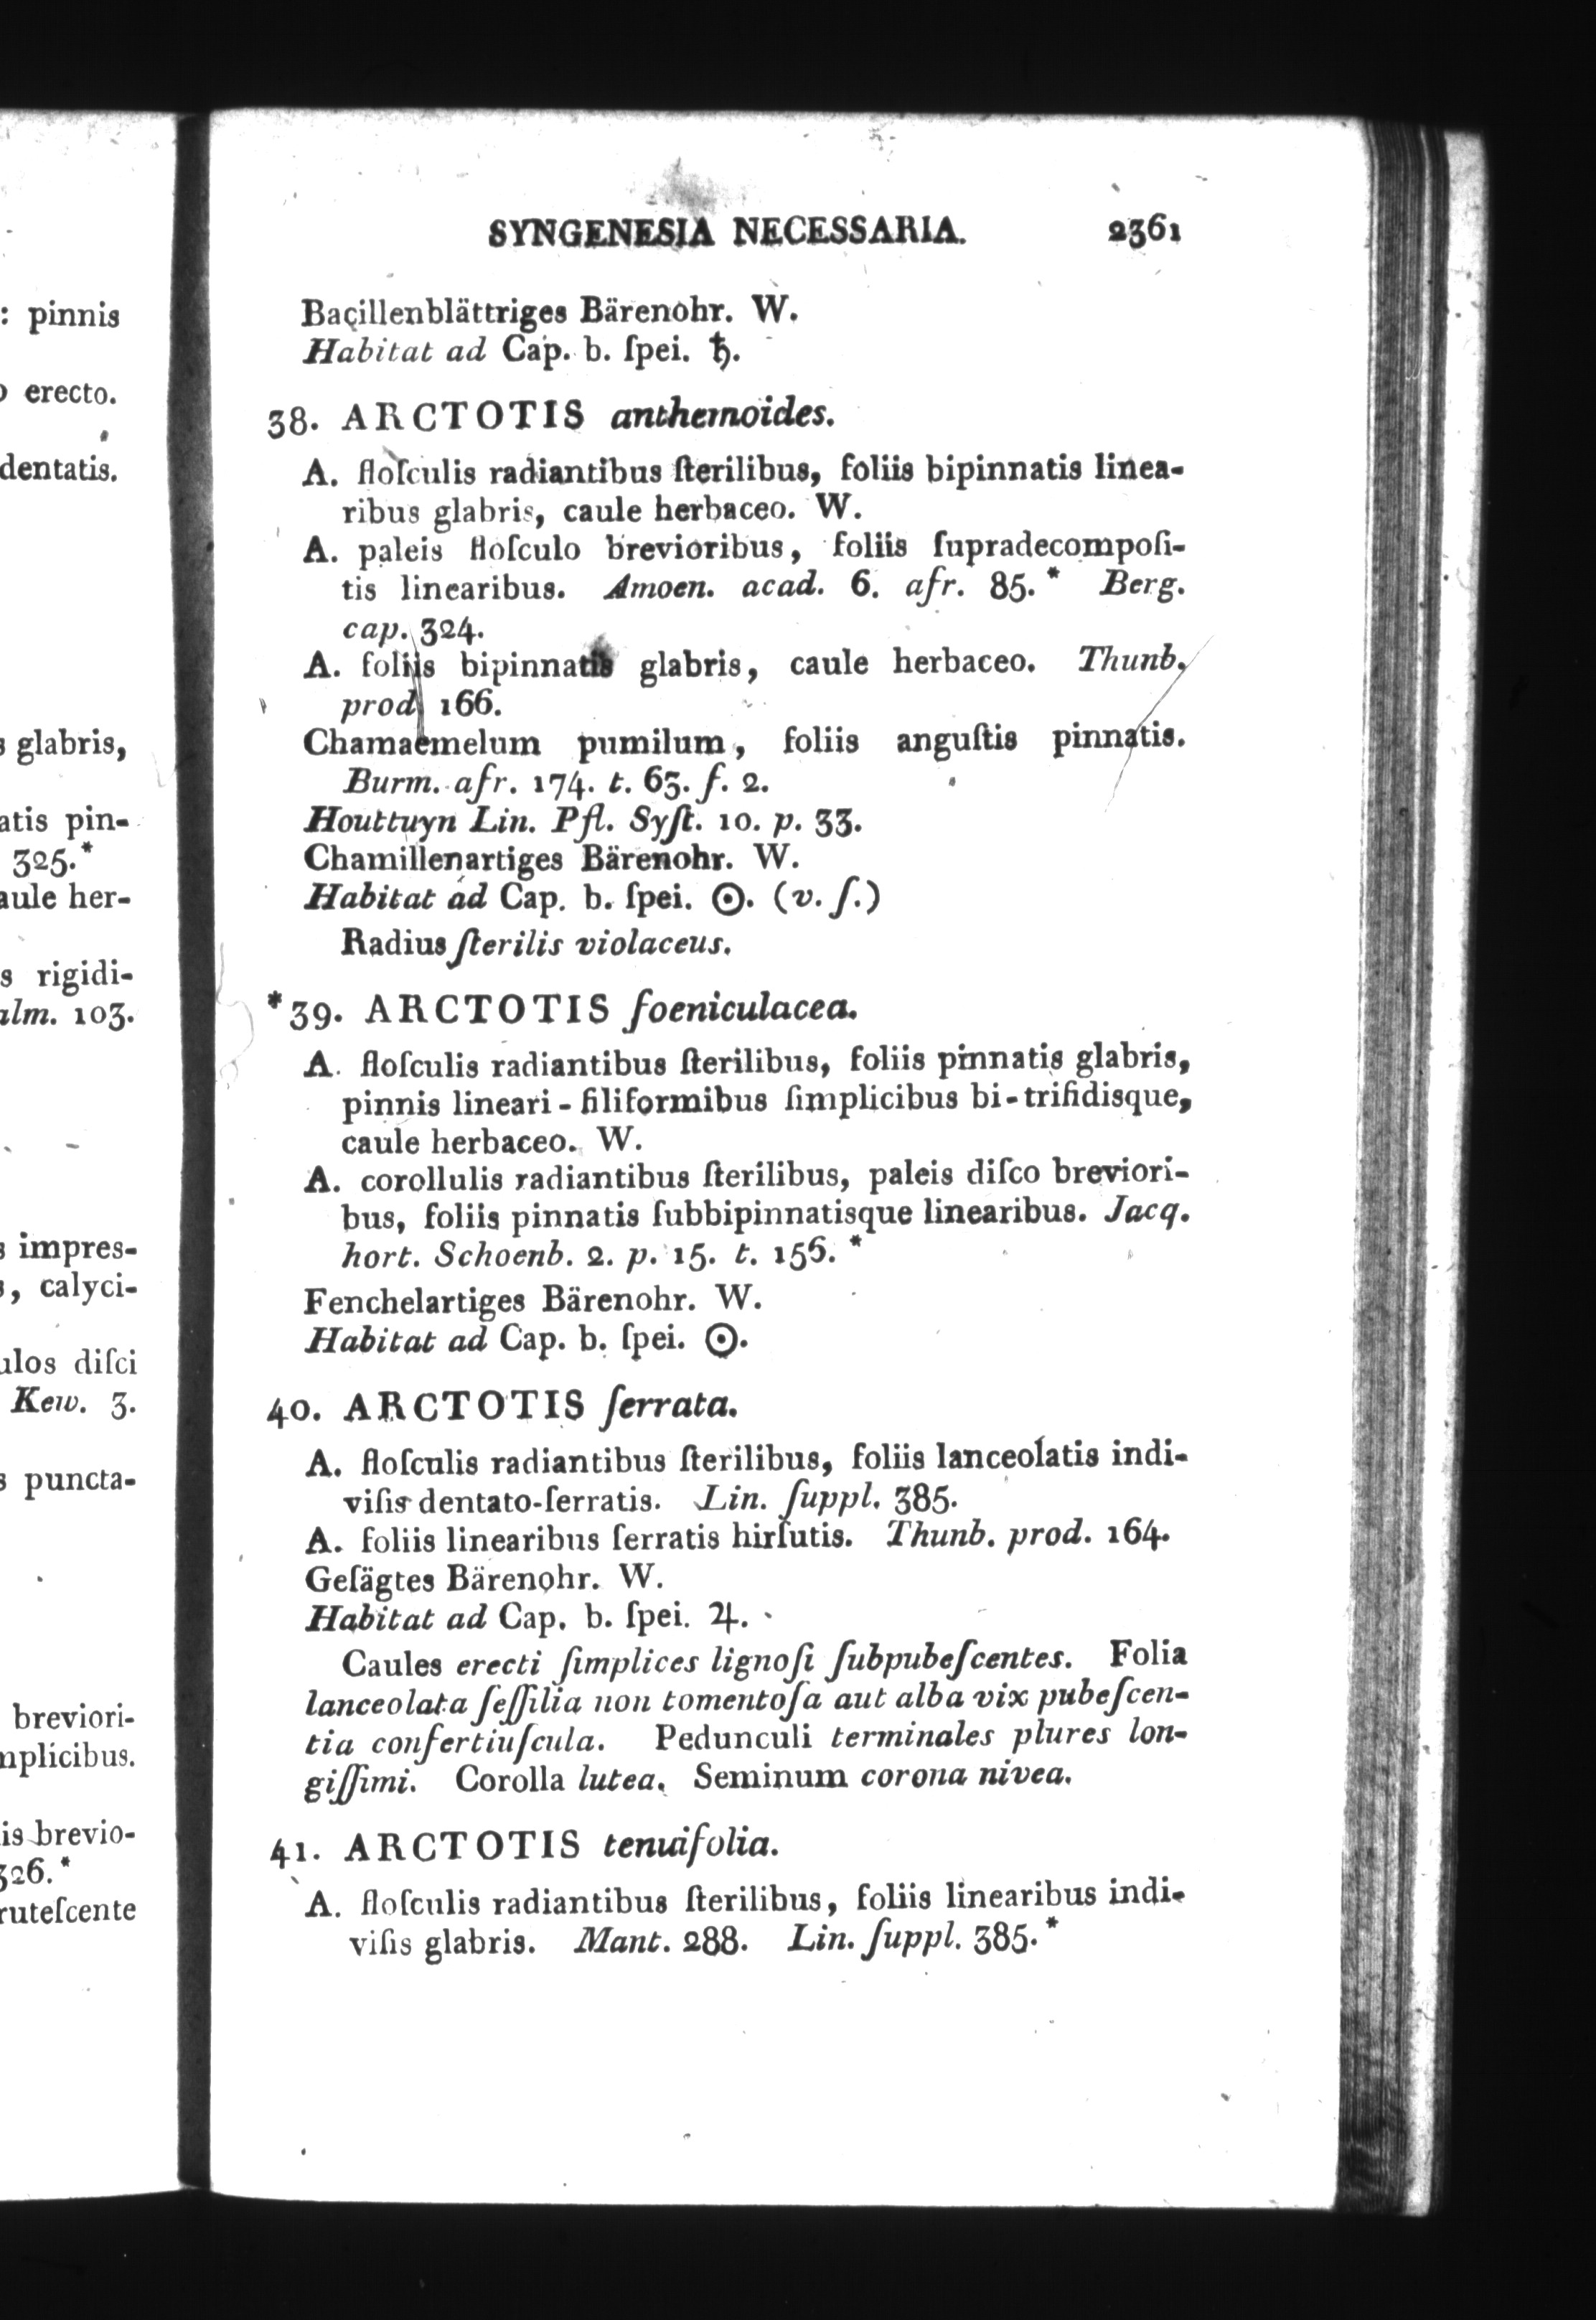 : pinnis
erecto.
dentatis.
glabris,
atis pin-
325.*
aule her-
s rigidi-
alm. 103.
impres-
, calyci-
ulos diſci
Kew. 3.
puncta-
breviori-
mplicibus.
is brevio-
326.*
ruteſcente
SYNGENESIA NECESSARIA. 2361
Bacillenblättriges Bärenohr. W.
Habitat ad Cap. b. ſpei. ♄.
38. ARCTOTIS anthemoides.
A. floſculis radiantibus ſterilibus, foliis bipinnatis linea-
ribus glabris, caule herbaceo. W.
A. paleis floſculo brevioribus, foliis ſupradecompoſi-
tis linearibus. Amoen. acad. 6. afr. 85.* Berg.
cap. 324.
A. foliis bipinnatis glabris, caule herbaceo. Thunb.
prod. 166.
Chamaemelum pumilum, foliis anguſtis pinnatis.
Burm. afr. 174. t. 63. f. 2.
Houttuyn Lin. Pfl. Syſt. 10. p. 33.
Chamillenartiges Bärenohr. W.
Habitat ad Cap. b. ſpei. ☉. (v. ſ.)
Radius ſterilis violaceus.
*39. ARCTOTIS foeniculacea.
A. floſculis radiantibus ſterilibus, foliis pinnatis glabris,
pinnis lineari-filiformibus ſimplicibus bi-trifidisque,
caule herbaceo. W.
A. corollulis radiantibus ſterilibus, paleis diſco breviori-
bus, foliis pinnatis ſubbipinnatisque linearibus. Jacq.
hort. Schoenb. 2. p. 15. t. 156.*
Fenchelartiges Bärenohr. W.
Habitat ad Cap. b. ſpei. ☉.
40. ARCTOTIS ſerrata.
A. floſculis radiantibus ſterilibus, foliis lanceolatis indi-
viſis dentato-ſerratis. Lin. ſuppl. 385.
A. foliis linearibus ſerratis hirſutis. Thunb. prod. 164.
Geſägtes Bärenohr. W.
Habitat ad Cap. b. ſpei. ♃.
Caules erecti ſimplices lignoſi ſubpubeſcentes. Folia
lanceolata ſeſſilia non tomentoſa aut alba vix pubeſcen-
tia confertiuſcula. Pedunculi terminales plures lon-
giſſimi. Corolla lutea. Seminum corona nivea.
41. ARCTOTIS tenuifolia.
A. floſculis radiantibus ſterilibus, foliis linearibus indi-
viſis glabris. Mant. 288. Lin. ſuppl. 385.*